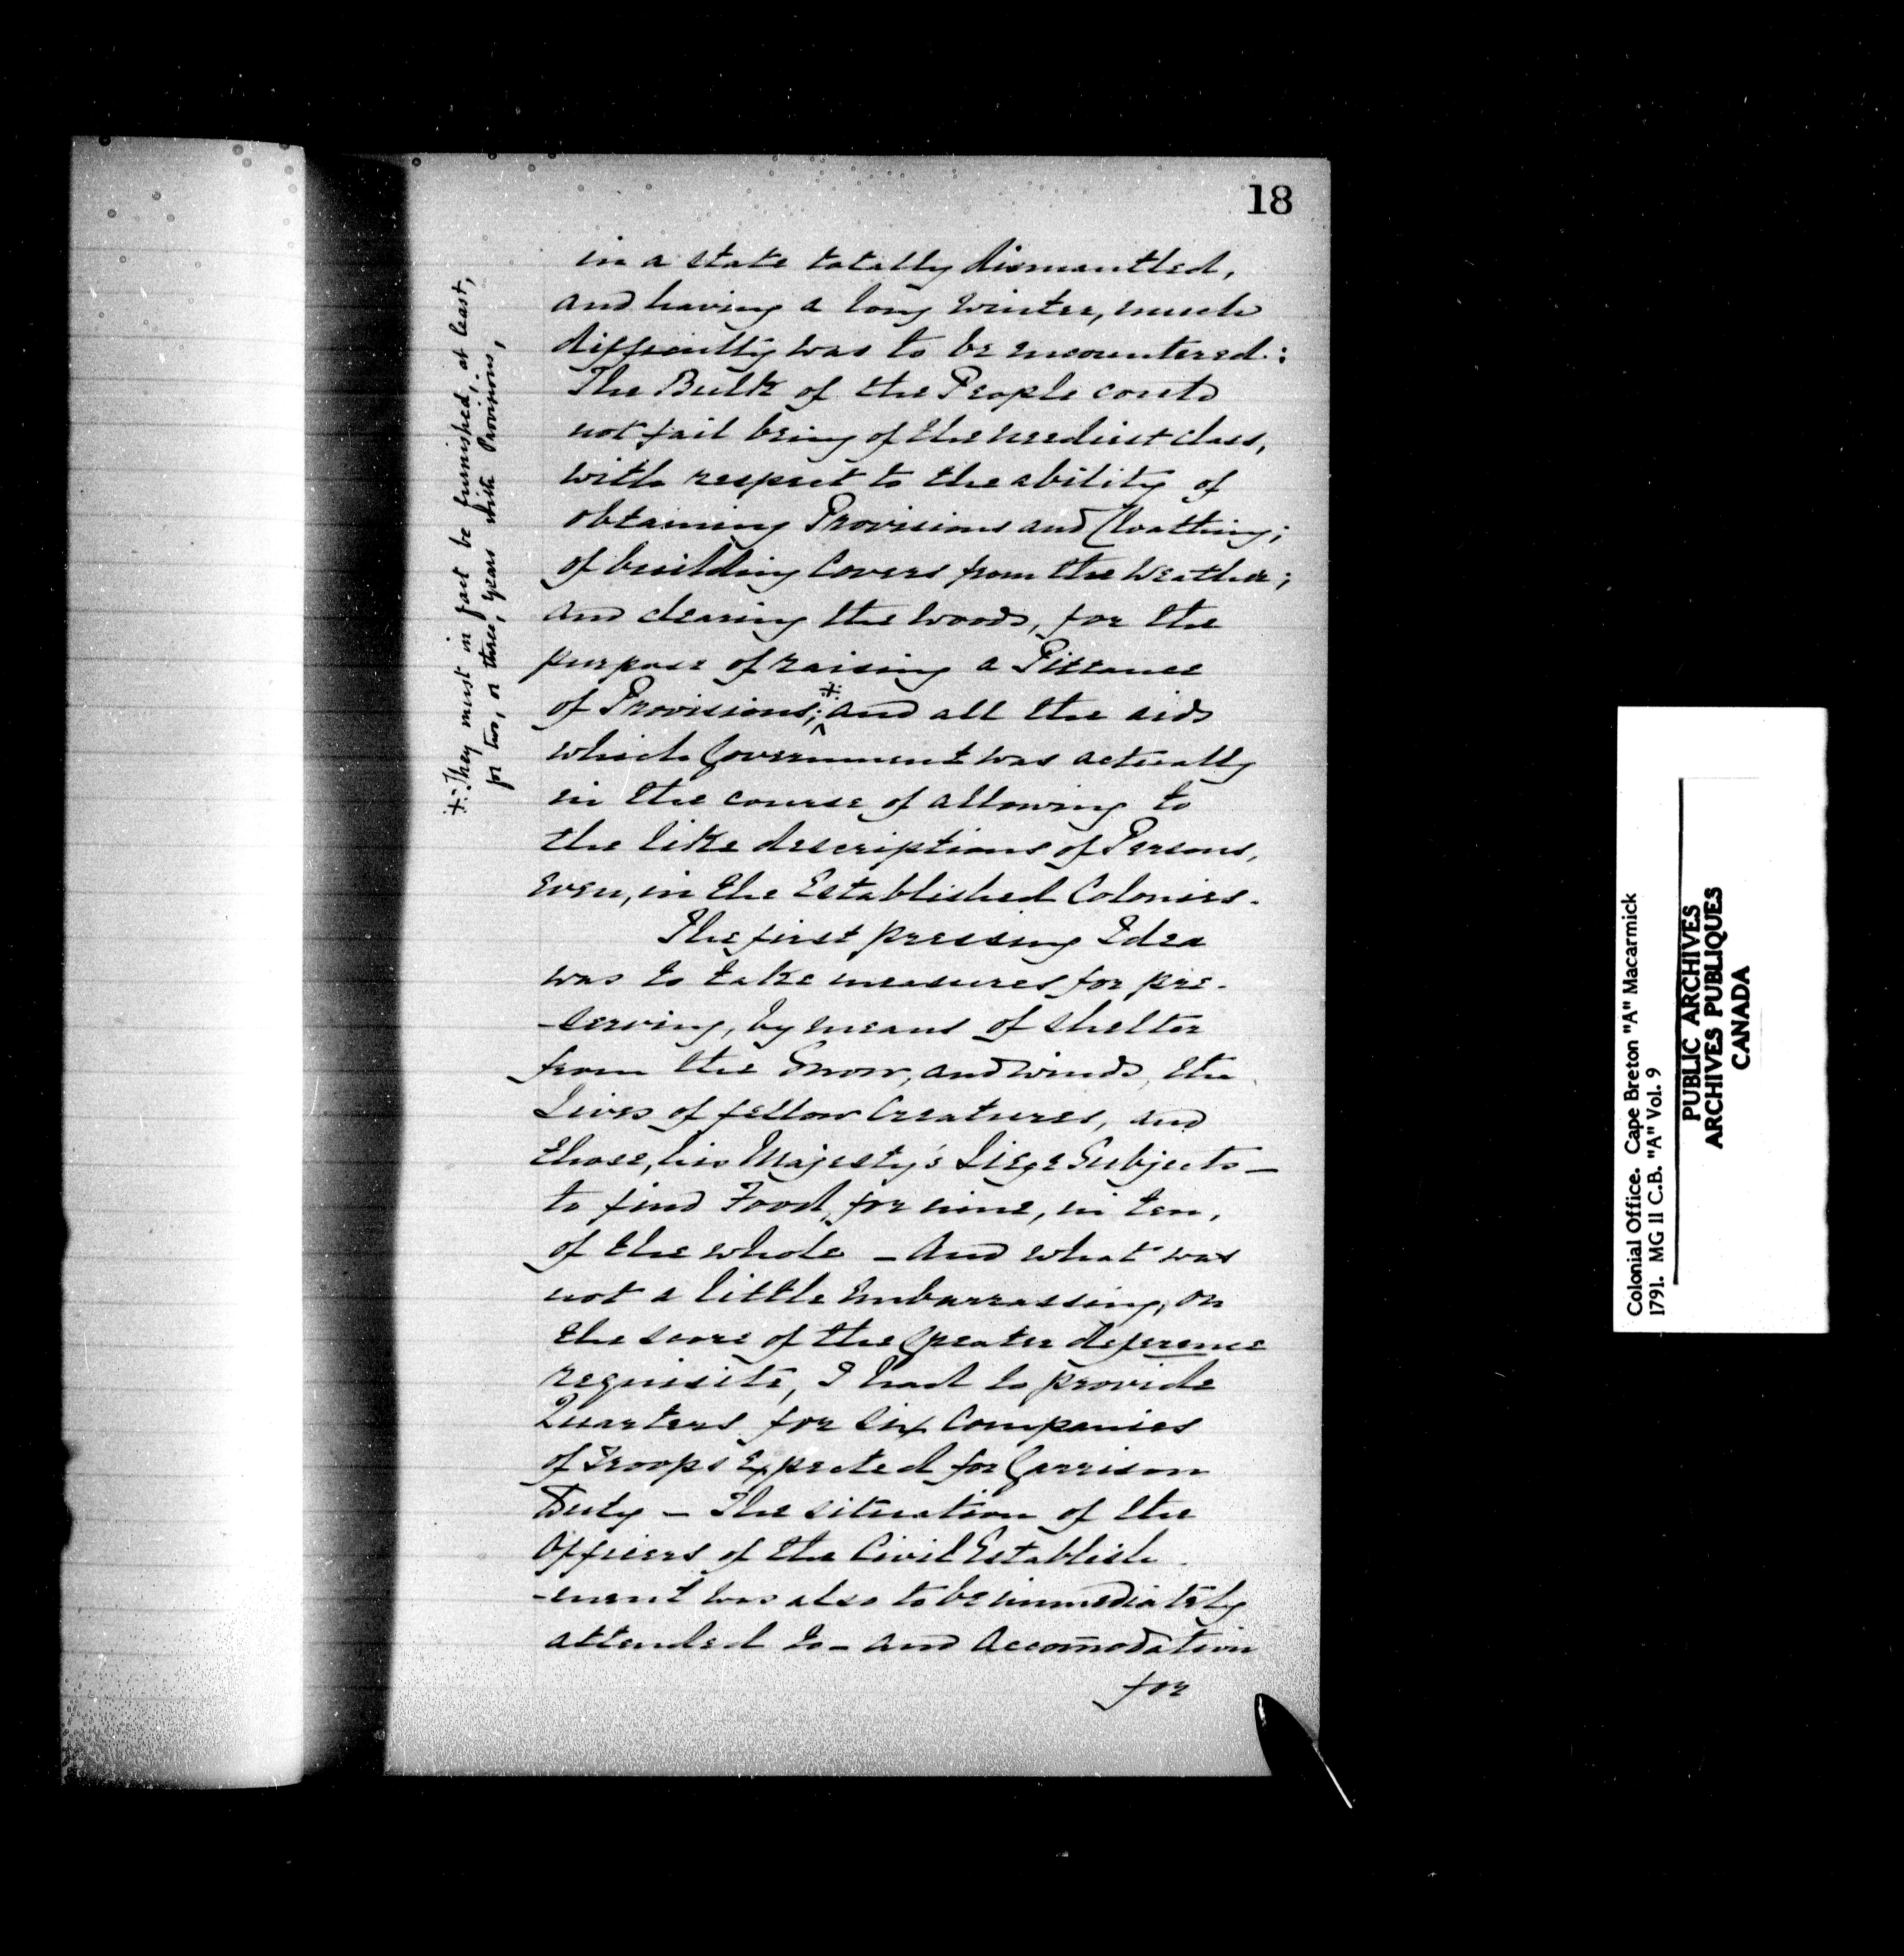 18
in a state totally dismantled,
and having a long winter, much
difficulty was to be encountered:
The Bulk of the People could
not fail being of the neediest class,
with respect to the ability of
obtaining Provisions and Cloathing;
of building Covers from the Weather;
and clearing the woods, for the
purpose of raising a Pittance
of Provisions; ※ and all the aids
which Government was actually
in the course of allowing to
the like descriptions of Persons,
even, in the Established Colonies.
The first pressing Idea
was to take measures for pre-
-serving, by means of shelter
from the Snow, and winds, the
Lives of fellow Creatures, and
those, his Majesty's Liege Subjects —
to find Food, for nine, in ten,
of the whole — And what was
not a little Embarrassing, on
the score of the Greater deference
requisite, I had to provide
Quarters for six Companies
of Troops Expected for Garrison
Duty — The situation of the
Officers of the Civil Establish-
-ment was also to be immediately
attended to — and Accom̄odation
for
※ They must in fact be furnished, at least,
for two, or three, years with Provisions,
Colonial Office. Cape Breton "A" Macarmick
1791. MG 11 C.B. "A" Vol. 9
PUBLIC ARCHIVES
ARCHIVES PUBLIQUES
CANADA